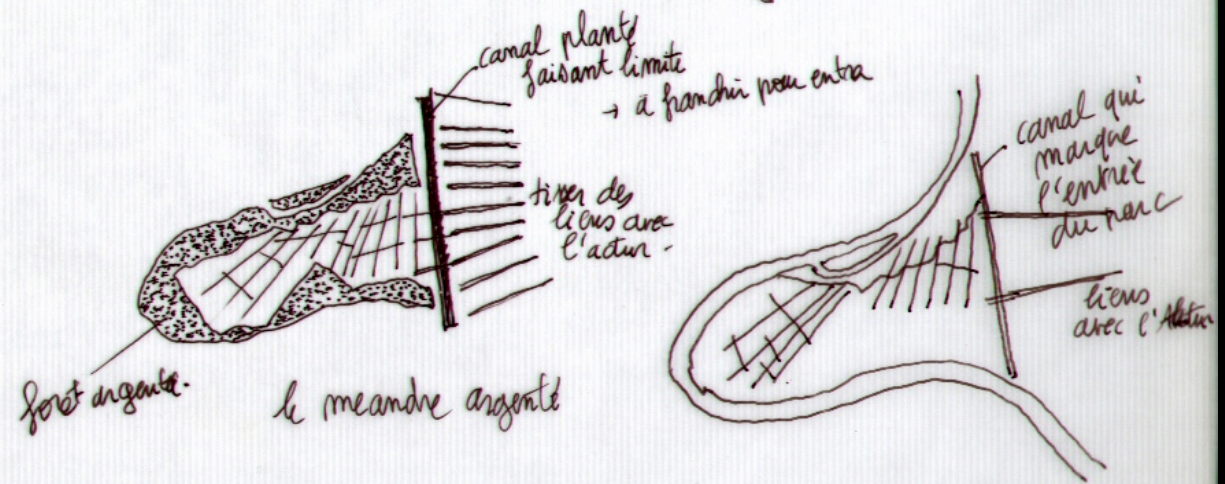 canal planté
faisant limite
→ à franchir pour entra
tisser des
liens avec
l'actur -
forêt argenté.
le meandre argenté
canal qui
marque
l'entrée
du parc
liens
avec l'